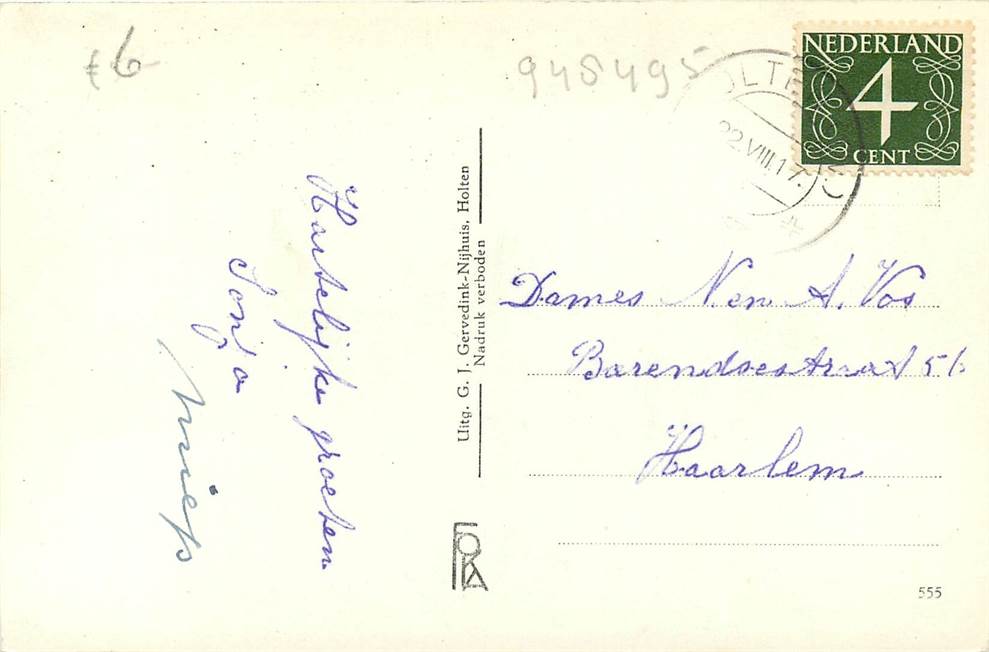 £ 6
945495
NEDERLAND
4
CENT
22.VIII.17.
Hartelijke groeten
Sonja
Miep
Uitg. G. J. Gervedink-Nijhuis, Holten
Nadruk verboden
Dames N en A. Vos
Barendsestraat 56
Haarlem
FOKA
555